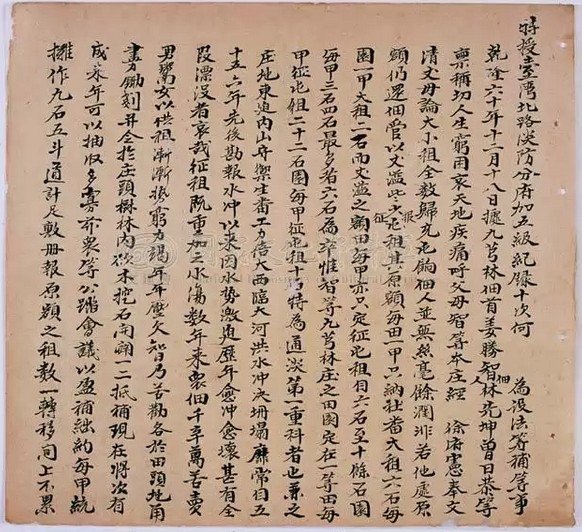 特授臺灣北路淡防分府加五級紀錄十次何　為設法籌補等事
乾隆六十年十二月十八日據九芎林佃首姜勝智佃人林乾坤曾日恭等
稟稱切人生窮困哀天地疾痛呼父母智等本庄經　徐府憲奉文
清丈毋論大小租全數歸充屯餉佃人並無絲毫餘潤非若他處原
額仍還佃管以丈溢些少征屯租其原額每田一甲只納社番大租六石每
園一甲大租二石而丈溢之額田每甲亦只定征屯租自六石至十餘石園
每甲三石四石最多者六石為率惟智等九芎林庄之田園定在一等田每
甲征屯租二十二石園每甲征屯租十石特為通淡第一重科者也兼之
庄地東迫內山守禦生番工力倍大西臨大河洪水沖決坍塌靡常自五
十五六年先後勘報水沖以來因水勢激迫歷年愈沖愈壞甚有全
段漂沒者哀哉征租既重加之水傷數年來衆佃千辛萬苦賣
男鬻女以供租漸漸勢窮力竭年年壓欠智乃苦勸各於田頭地角
盡力鋤刻並令於庄頭樹林內砍木挖石開闢一二抵補現在將次有
成來年可以抽收多寡亦衆等公踏會議以盈補絀約每甲統
攤作九石五斗通計足敷冊報原額之租數一轉移間上不累